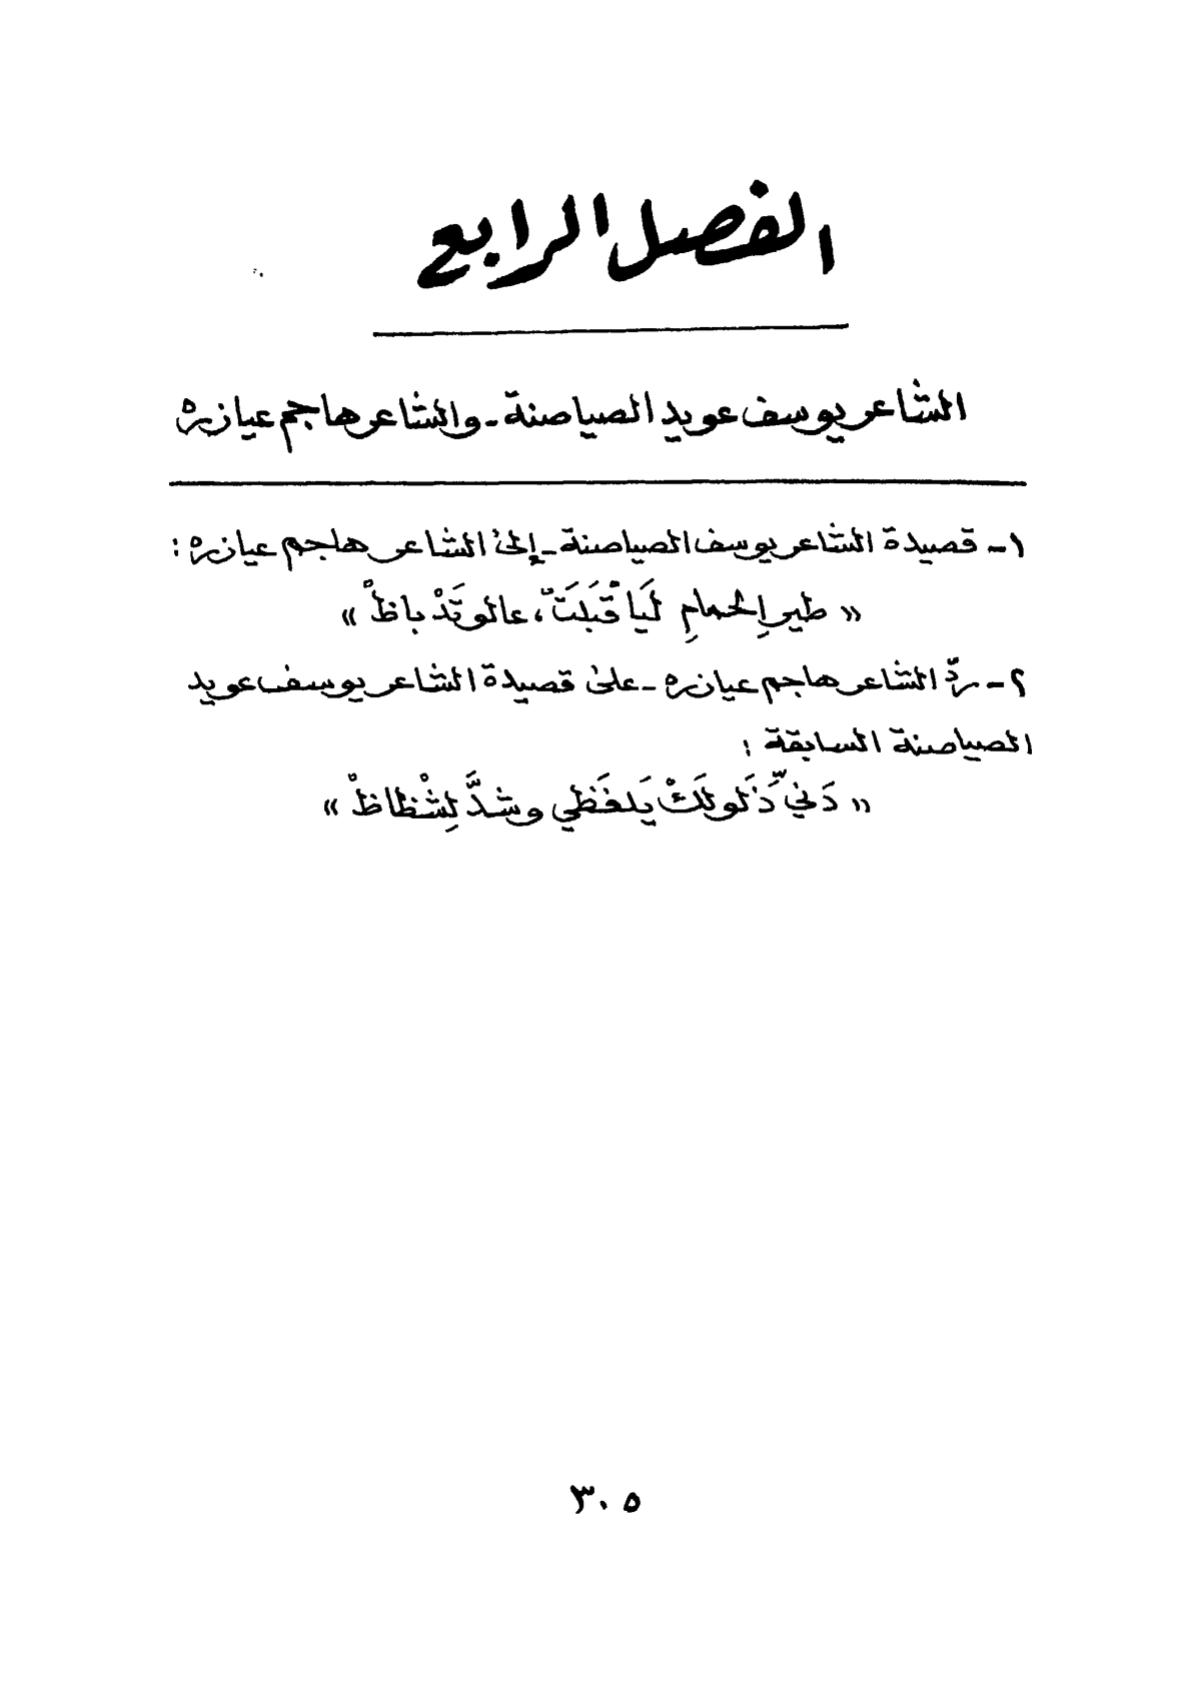 الفصل الرابع
الشاعر يوسف عويد الصياصنة - والشاعر هاجم عيازره
١- قصيدة الشاعر يوسف الصياصنة - إلى الشاعر هاجم عيازره :
« طيرِ الحمامِ لَيا قْبَلَتّ ، عالو تَدْ باظْ »
٢- ردّ الشاعر هاجم عيازره - على قصيدة الشاعر يوسف عويد
الصياصنة السابقة :
« دَنيّ ذَلولَكْ يَلفَظي وشدَّ لِشْظاظْ »
٣٠٥